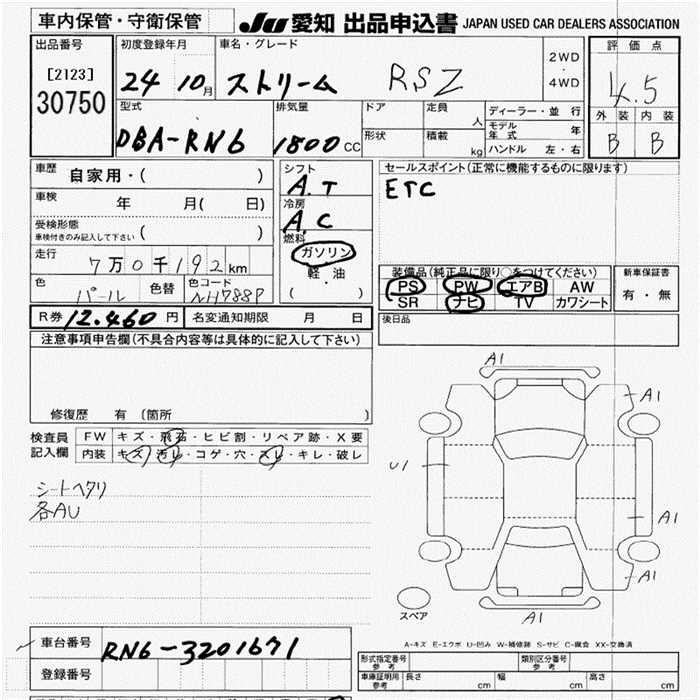 車内保管・守衛保管
JU 愛知 出品申込書 JAPAN USED CAR DEALERS ASSOCIATION
出品番号
[2123]
30750
初度登録年月
24 10月
車名・グレード
ストリーム RSZ
2WD
・
4WD
評価点
4.5
外装 内装
B B
型式
DBA-RN6
排気量
1800cc
ドア
形状
定員
人
積載
kg
ディーラー・並行
モデル年式 年
ハンドル 左・右
車歴
自家用・( )
車検
年 月( 日)
受検形態
車検付きのみ記入して下さい ( )
走行
7万0千192km
色
パール
色替
色コード
NH788P
シフト
A.T
冷房
A.C
燃料
ガソリン
軽・油
( )
セールスポイント(正常に機能するものに限ります)
ETC
装備品(純正品に限り○をつけてください)
PS PW エアB AW
SR ナビ TV カワシート
新車保証書
有・無
R券 12.460円
名変通知期限 月 日
後日品
注意事項申告欄(不具合内容等は具体的に記入して下さい)
修復歴 有 〔箇所 〕
検査員
記入欄
FW キズ・飛石・ヒビ割・リペア跡・X要
内装 キズ・汚レ・コゲ・穴・スレ・キレ・破レ
シートヘタリ
各AU
A1
A1
U1
A1
A1
A1
スペア
A-キズ E-エクボ U-凹み W-補修跡 S-サビ C-腐食 XX-交換済
車台番号
RN6-3201671
登録番号
型式指定番号
参考
類別区分番号
参考
車庫証明用
参考
長さ cm
幅 cm
高さ cm